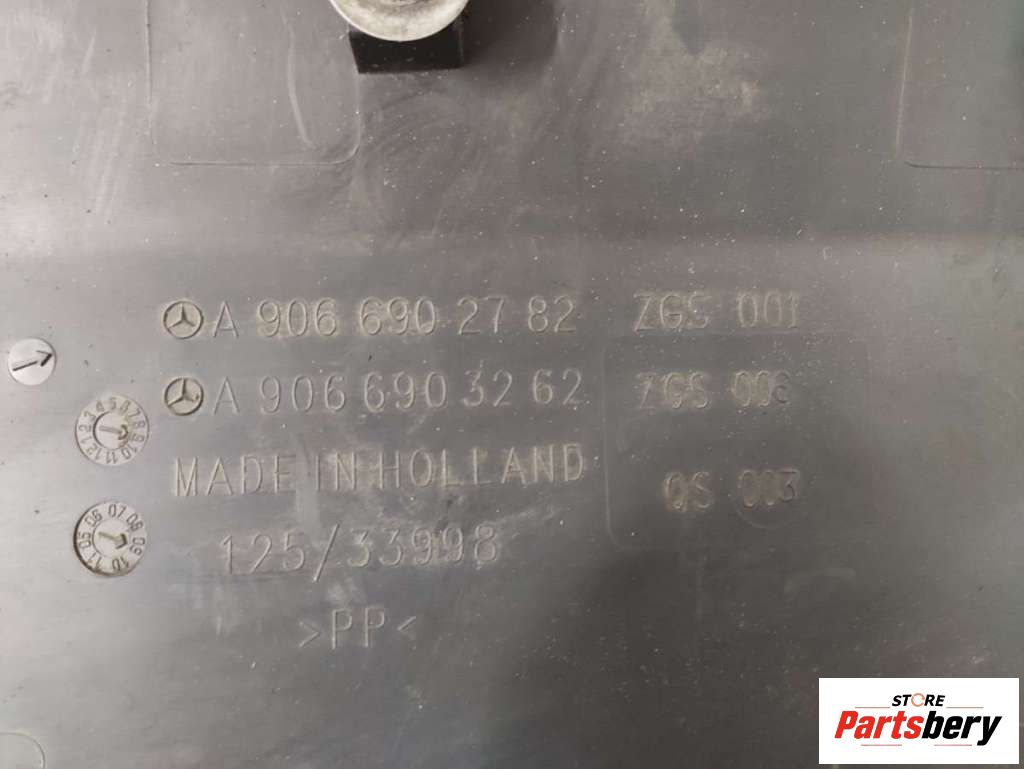 A 906 690 27 82 ZGS 001
A 906 690 32 62 ZGS 006
MADE IN HOLLAND QS 003
125/33998
>PP<
1 2 3 4 5 6 7 8 9 10 11 12
05 06 07 08 09 10
STORE
Partsbery